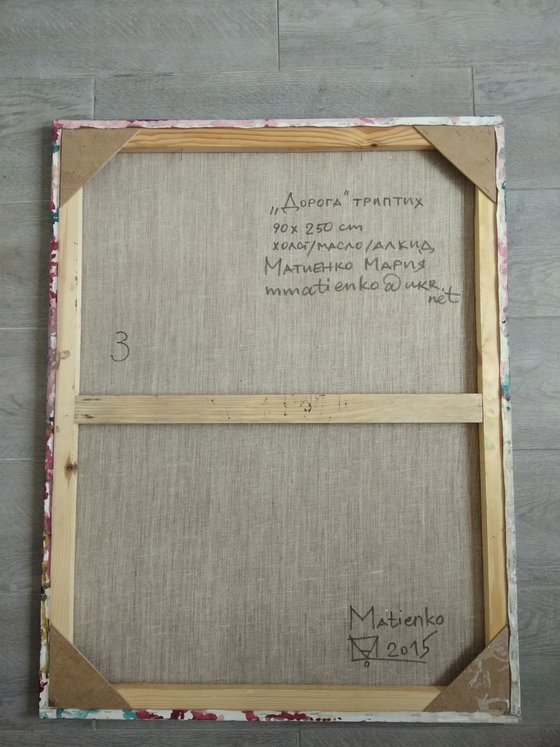 „Дорога" триптих
90x250 cm
холст/масло/алкид
Матиенко Мария
mmatienko@ukr.
net
3
Matienko
2015